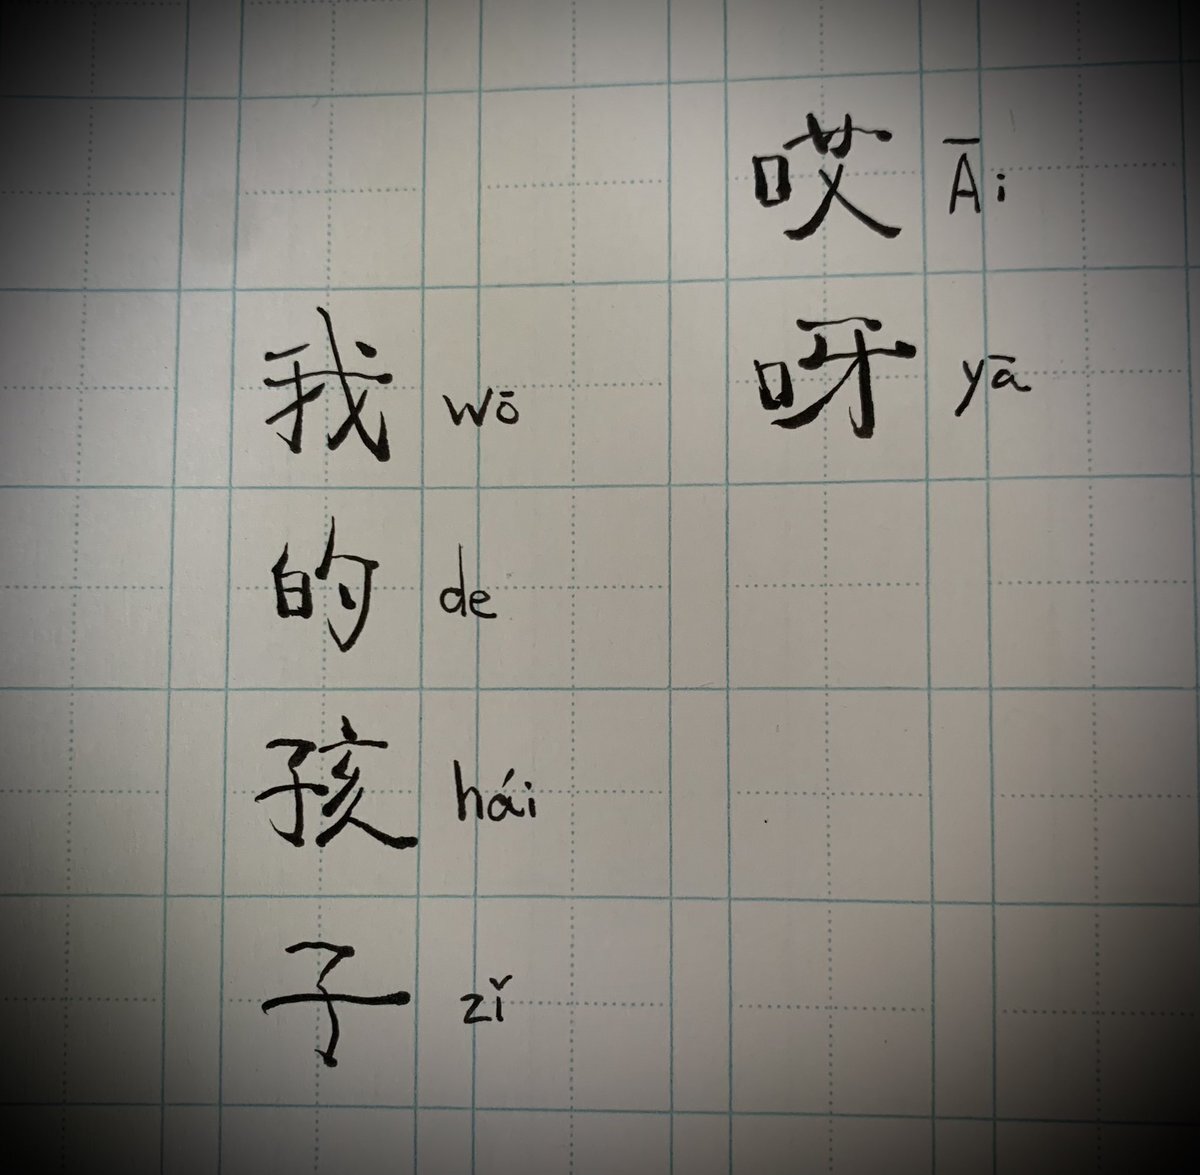 哎呀
Āi yā
我的孩子
wō de hái zǐ